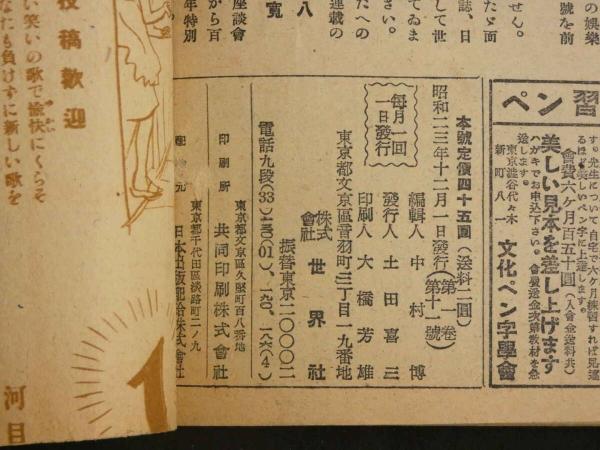 の娯樂
號を前
せん。
たゞ面
誌、日
して世
てゐま
さい。
たへの
連載の
八
寛
座談會
から百
年特別
ペン習
す。先生について自宅で六ケ月練習すれば見違
るほど美しいペン字に上達します。
會費六ケ月百五十圓(入會金送料共)
美しい見本を差し上げます
ハガキでお申込下さい。會費送金次第教材を急
送します。
東京澁谷代々木
新町八一
文化ペン字學會
本號定價四十五圓(送料二圓)
昭和二三年十二月一日發行(第一卷第十一號)
每月一回
一日發行
編輯人 中村博
發行人 土田喜三
印刷人 大橋芳雄
東京都文京區音羽町三丁目一九番地
株式會社 世界社
振替東京二〇〇〇二
電話九段(33)
東京都文京區久堅町百八番地
印刷所 共同印刷株式會社
東京都千代田區淡路町二ノ九
配給元 日本出版配給株式會社
投稿歡迎
い笑いの歌で愉快にくらそ
なたも負けずに新しい歌を
河目
1